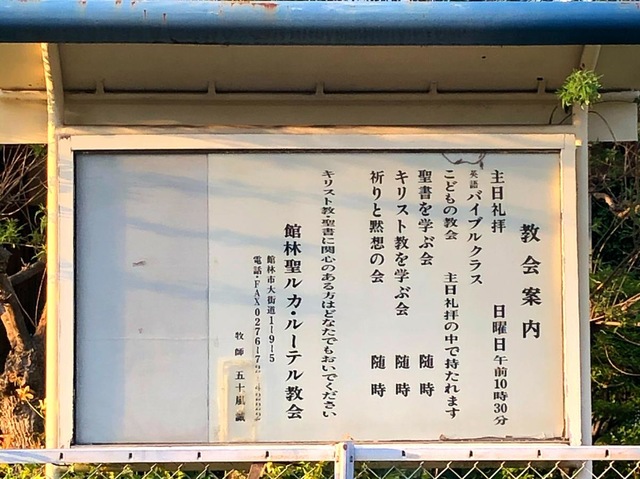 教会案内
主日礼拝 日曜日午前10時30分
英語バイブルクラス
こどもの教会 主日礼拝の中で持たれます
聖書を学ぶ会 随時
キリスト教を学ぶ会 随時
祈りと黙想の会 随時
キリスト教・聖書に関心のある方はどなたでもおいでください
館林聖ルカ・ルーテル教会
館林市大街道1-9-5
電話・FAX0276-7
牧師 五十嵐 誠